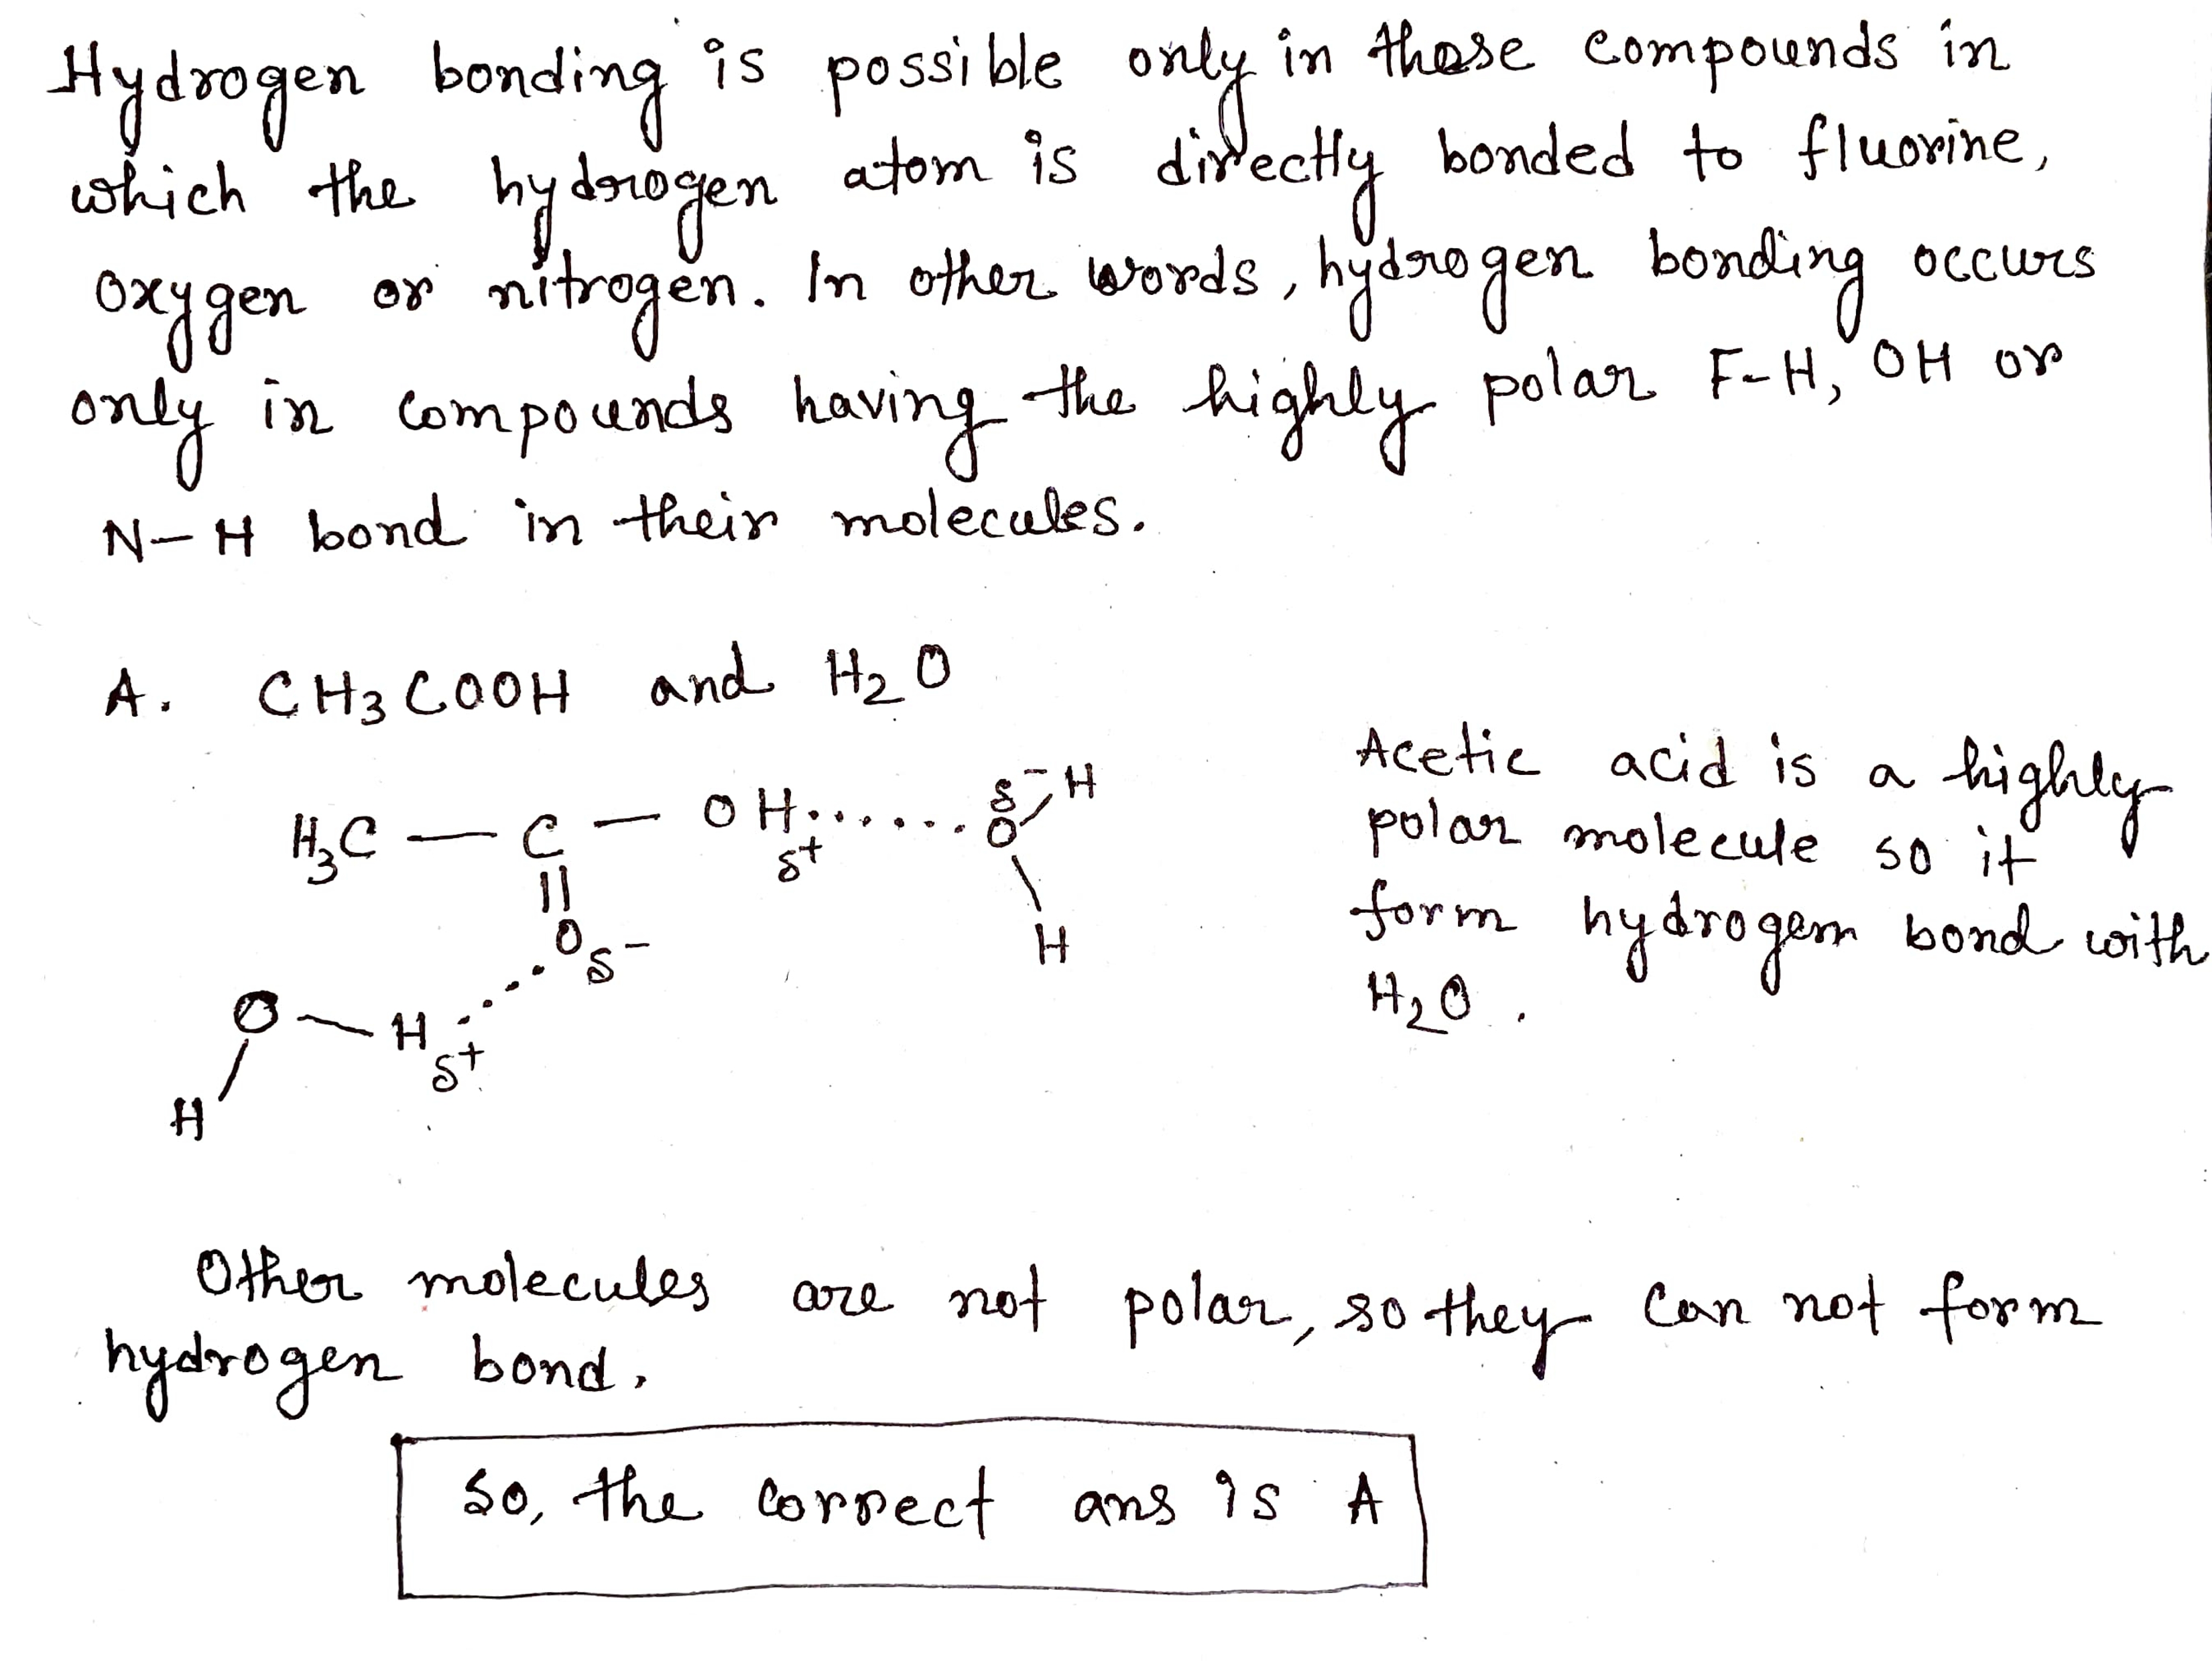 Hydrogen bonding is possible only in those compounds in
which the hydrogen atom is directly bonded to fluorine,
oxygen or nitrogen. In other words, hydrogen bonding occurs
only in compounds having the highly polar F-H, OH or
N-H bond in their molecules.
A. CH3COOH and H2O
Acetic acid is a highly
polar molecule so it
form hydrogen bond with
H2O.
δ- H
H3C - C - OH.......O
δ+
||
H
O δ-
O - H
δ+
H
Other molecules are not polar, so they can not form
hydrogen bond.
So, the correct ans is A